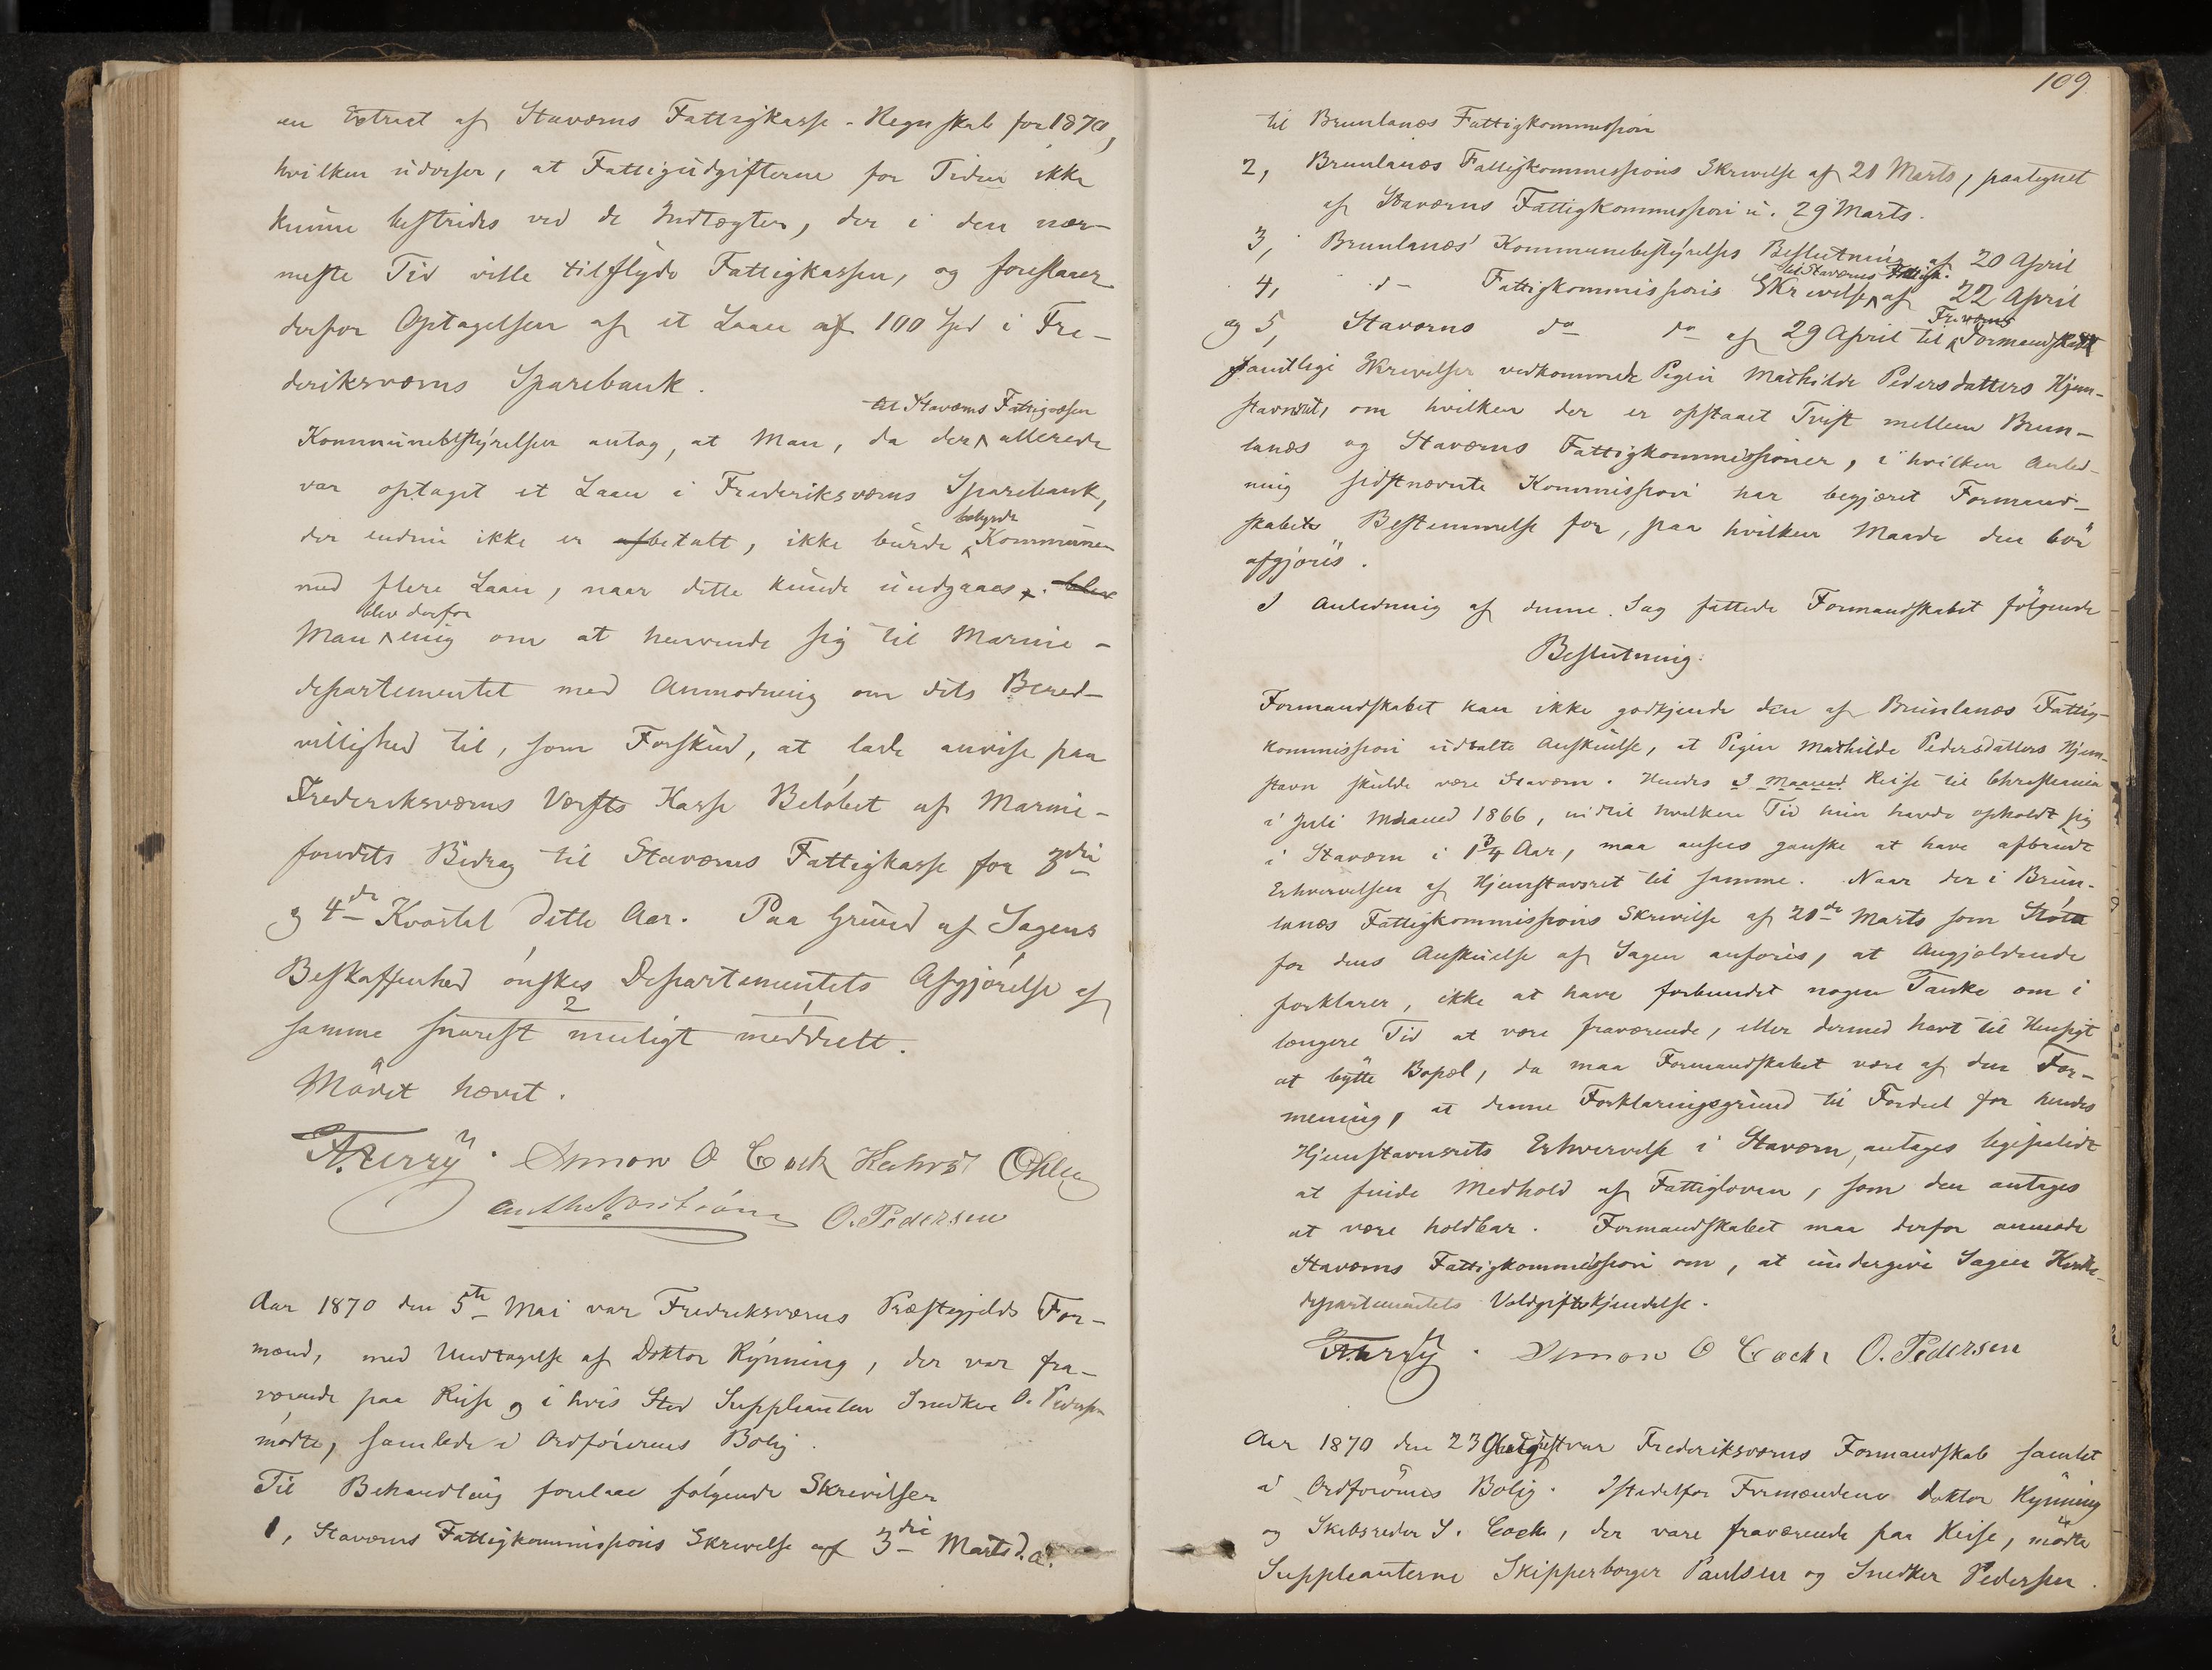 en Extract af Staværns Fattigkasse-Regnskab for 1870,
hvilken udviser, at Fattigudgifterne for Tiden ikke
kunne bestrides ved de Indtægter, der i den nær-
meste Tid ville tilflyde Fattigkassen, og foreslaaer
derfor Optagelsen af et Laan af 100 Spd i Fre-
deriksværns Sparebank.
til Staværns Fattigvæsen
Kommunebestyrelsen antog, at Man, da der allerede
var optaget et Laan i Frederiksværns Sparebank,
bebyrde
der endnu ikke er afbetalt, ikke burde Kommunen
med flere Laan, naar dette kunde undgaaes. blev
blev derfor
Man enig om at henvende sig til Marine-
departementet med Anmodning om dets Bered-
villighed til, som Forskud, at lade anvise paa
Frederiksværns Værfts Kasse Beløbet af Marine-
fondets Bidrag til Staværns Fattigkasse for 3die
og 4de Kvartal dette Aar. Paa Grund af Sagens
Beskaffenhed ønskes Departementets Afgjørelse af
2 1
samme snarest muligt meddeelt.
Mødet hævet.
Simon O Cock O. Pedersen
Aar 1870 den 5te Mai var Fredriksværns Præstegjelds For-
mænd, med Undtagelse af Doktor Rynning, der var fra-
værende paa Reise og i hvis Sted Suppleanten Snedker O. Pedersen
mødte, samlede i Ordførerens Bolig.
Til Behandling forelaae følgende Skrivelser
1, Staværns Fattigkommissions Skrivelse af 3die Marts d.a.
109
til Brunlanæs Fattigkommission
2, Brunlanæs Fattigkommissions Skrivelse af 21 Marts, paategnet
af Staværns Fattigkommission u. 29 Marts.
3, Brunlanæs' Kommunebestyrelses Beslutning af 20 April
til Staværns Fattigk.
4, d- Fattigkommissions Skrivelse af 22 April
Fr.værns
og 5, Staværns do do af 29 April til Formandskabet
samtlige Skrivelser vedkommende Pigen Mathilde Pedersdatters Hjem-
stavnsret, om hvilken der er opstaaet Tvist mellem Brun-
lanæs og Staværns Fattigkommissioner, i hvilken Anled-
ning sidstnævnte Kommission har begjæret Formand-
skabets Bestemmelse for, paa hvilken Maade den bør
afgjøres.
I Anledning af denne Sag fattede Formandskabet følgende
Beslutning:
Formandskabet kan ikke godkjende den af Brunlanæs Fattig-
kommission udtalte Anskuelse, at Pigen Mathilde Pedersdatters Hjem-
stavn skulde være Staværn. Hendes 3 Maaned Reise til Christiania
i Juli Maaned 1866, indtil hvilken Tid hun havde opholdt sig
i Staværn i 1¾ Aar, maa ansees ganske at have afbrudt
Erhvervelsen af Hjemstavsret til samme. Naar der i Brun-
lanæs Fattigkommissions Skrivelse af 21de Marts som Støtte
for dens Anskuelse af Sagen anføres, at Angjældende
forklarer, ikke at have forbundet nogen Tanke om i
længere Tid at være fraværende, eller dermed havt til Hensigt
at bytte Bopæl, da maa Formandskabet være af den For-
mening, at denne Forklaringsgrund til Fordeel for hendes
Hjemstavnsrets Erhvervelse i Staværn, antages ligesaalidt
at finde Medhold af Fattigloven, som den antages
at være holdbar. Formandskabet maa derfor anmode
Staværns Fattigkommission om, at undergive Sagen Kirke-
departementets Voldgiftskjendelse.
Simon O Cock O. Pedersen
Aar 1870 den 23 August var Frederiksværns Formandskab samlet
i Ordførerens Bolig. Istedetfor Formændene Doktor Rynning
og Skibsreder S. Cock, der vare fraværende paa Reise, mødte
Suppleanterne Skipperborger Paulsen og Snedker Pedersen.